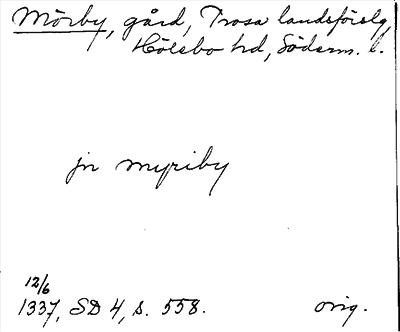 Mörby, gård, Trosa landsförslg,
Hölebo hd, Söderm. l.
jn myriby
12/6
1337, SD 4, s. 558. orig.